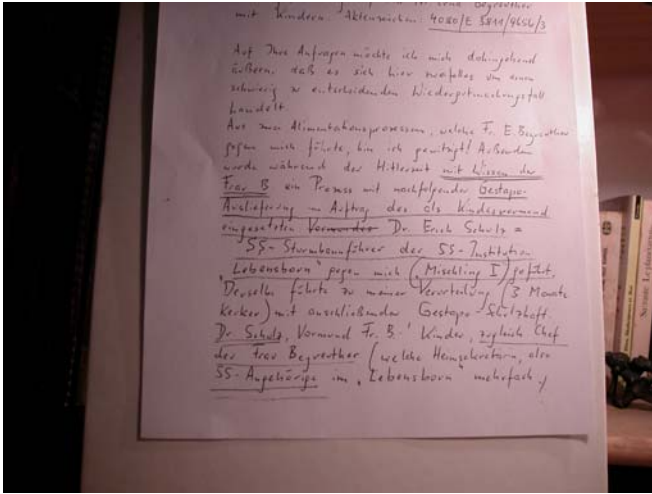 Begreuther
mit Kindern. Aktenzeichen: 4080/E 5811/8656/3
Auf Ihre Anfragen möchte ich mich dahingehend
äußern, daß es sich hier um einen
schwierig zu entscheidenden Wiedergutmachungsfall
handelt.
Aus zwei Alimentationsprozessen, welche Fr. E. Begreuther
gegen mich führte, bin ich gewitzigt! Außerdem
wurde während der Hitlerzeit mit Wissen der
Frau B ein Prozess mit nachfolgender Gestapo-
Auslieferung im Auftrag des als Kindesvormund
eingesetzten Dr. Erich Schulz =
SS-Sturmbannführer der SS-Institution
"Lebensborn" gegen mich (Mischling I) geführt.
Derselbe führte zu meiner Verurteilung (3 Monate
Kerker) mit anschließender Gestapo-Schutzhaft.
Dr. Schulz, Vormund Fr. B.-' Kinder, zugleich Chef
der Frau Begreuther (welche Heimsekretärin, also
SS-Angehörige im "Lebensborn" mehrfach